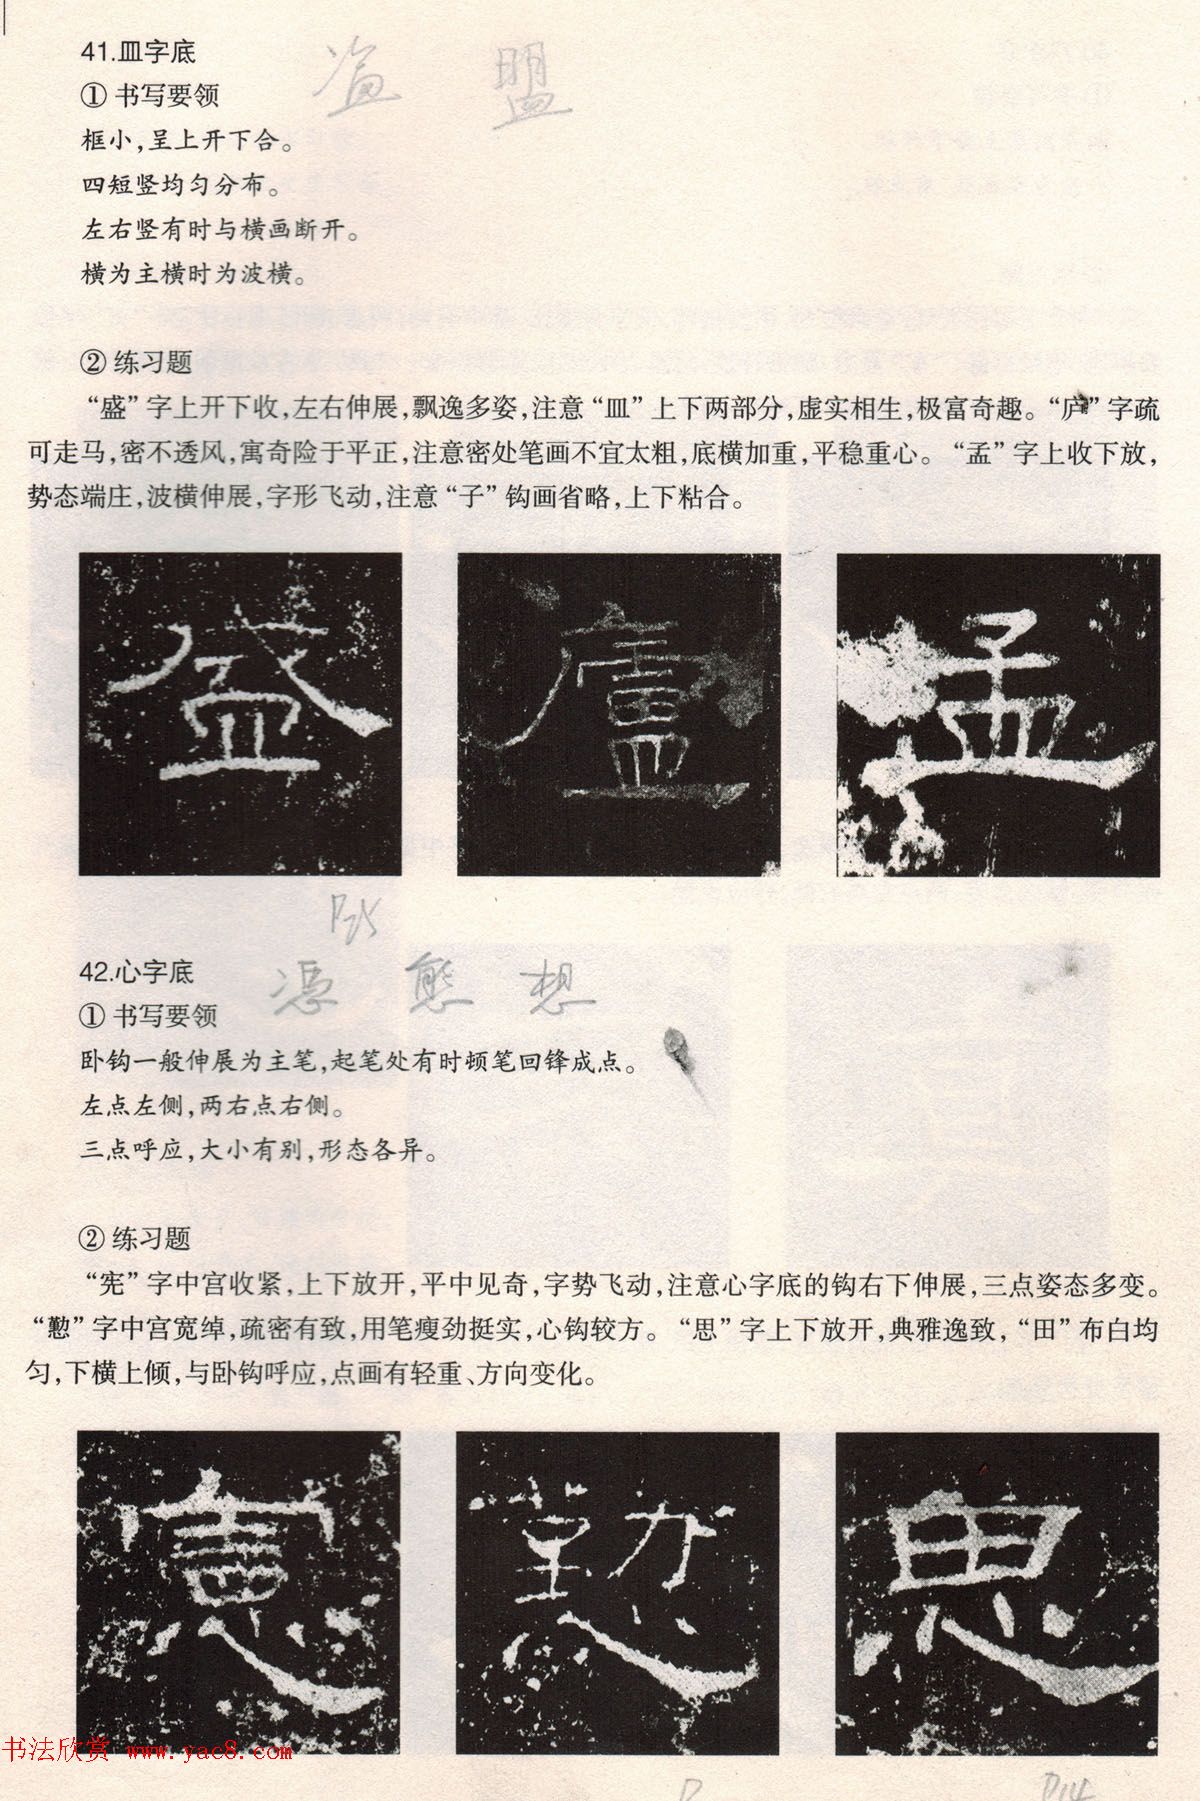 41.皿字底
盗 盟
① 书写要领
框小,呈上开下合。
四短竖均匀分布。
左右竖有时与横画断开。
横为主横时为波横。
② 练习题
“盛”字上开下收,左右伸展,飘逸多姿,注意“皿”上下两部分,虚实相生,极富奇趣。“庐”字疏
可走马,密不透风,寓奇险于平正,注意密处笔画不宜太粗,底横加重,平稳重心。“孟”字上收下放,
势态端庄,波横伸展,字形飞动,注意“子”钩画省略,上下粘合。
盛 廬 孟
42.心字底
憑 態 想
① 书写要领
卧钩一般伸展为主笔,起笔处有时顿笔回锋成点。
左点左侧,两右点右侧。
三点呼应,大小有别,形态各异。
② 练习题
“宪”字中宫收紧,上下放开,平中见奇,字势飞动,注意心字底的钩右下伸展,三点姿态多变。
“懃”字中宫宽绰,疏密有致,用笔瘦劲挺实,心钩较方。“思”字上下放开,典雅逸致,“田”布白均
匀,下横上倾,与卧钩呼应,点画有轻重、方向变化。
憲 懃 思
书法欣赏 www.yac8.com
P14